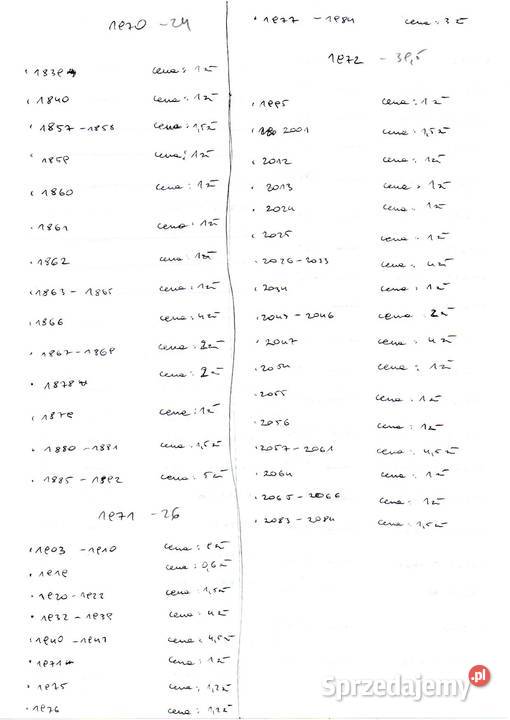 1970 - 24
• 1839 cena: 1 zł
• 1840 cena: 1 zł
• 1857 - 1858 cena: 1,5 zł
• 1859 cena: 1 zł
• 1860 cena: 1 zł
• 1861 cena: 1 zł
• 1862 cena: 1 zł
• 1863 - 1865 cena: 1 zł
• 1866 cena: 4 zł
• 1867 - 1869 cena: 2 zł
• 1878 cena: 2 zł
• 1879 cena: 1 zł
• 1880 - 1881 cena: 1,5 zł
• 1885 - 1892 cena: 5 zł
1971 - 26
• 1903 - 1910 cena: zł
• 1919 cena: 0,6 zł
• 1920 - 1922 cena: 1,5 zł
• 1932 - 1939 cena: 4 zł
• 1940 - 1947 cena: 4,5 zł
• 1971 cena: 1 zł
• 1975 cena: 1,2 zł
• 1976 cena: 1,2 zł
• 1977 - 1984 cena: 3 zł
1972 - 39,5
• 1995 cena: 1 zł
• 2001 cena: 1,5 zł
• 2012 cena: 1 zł
• 2013 cena: 1 zł
• 2024 cena: 1 zł
• 2025 cena: 1 zł
• 2026 - 2033 cena: 4 zł
• 2034 cena: 1 zł
• 2043 - 2046 cena: 2 zł
• 2047 cena: 4 zł
• 2054 cena: 1 zł
• 2055 cena: 1 zł
• 2056 cena: 1 zł
• 2057 - 2061 cena: 4,5 zł
• 2064 cena: 1 zł
• 2065 - 2066 cena: 1 zł
• 2083 - 2084 cena: 1,5 zł
Sprzedajemy.pl